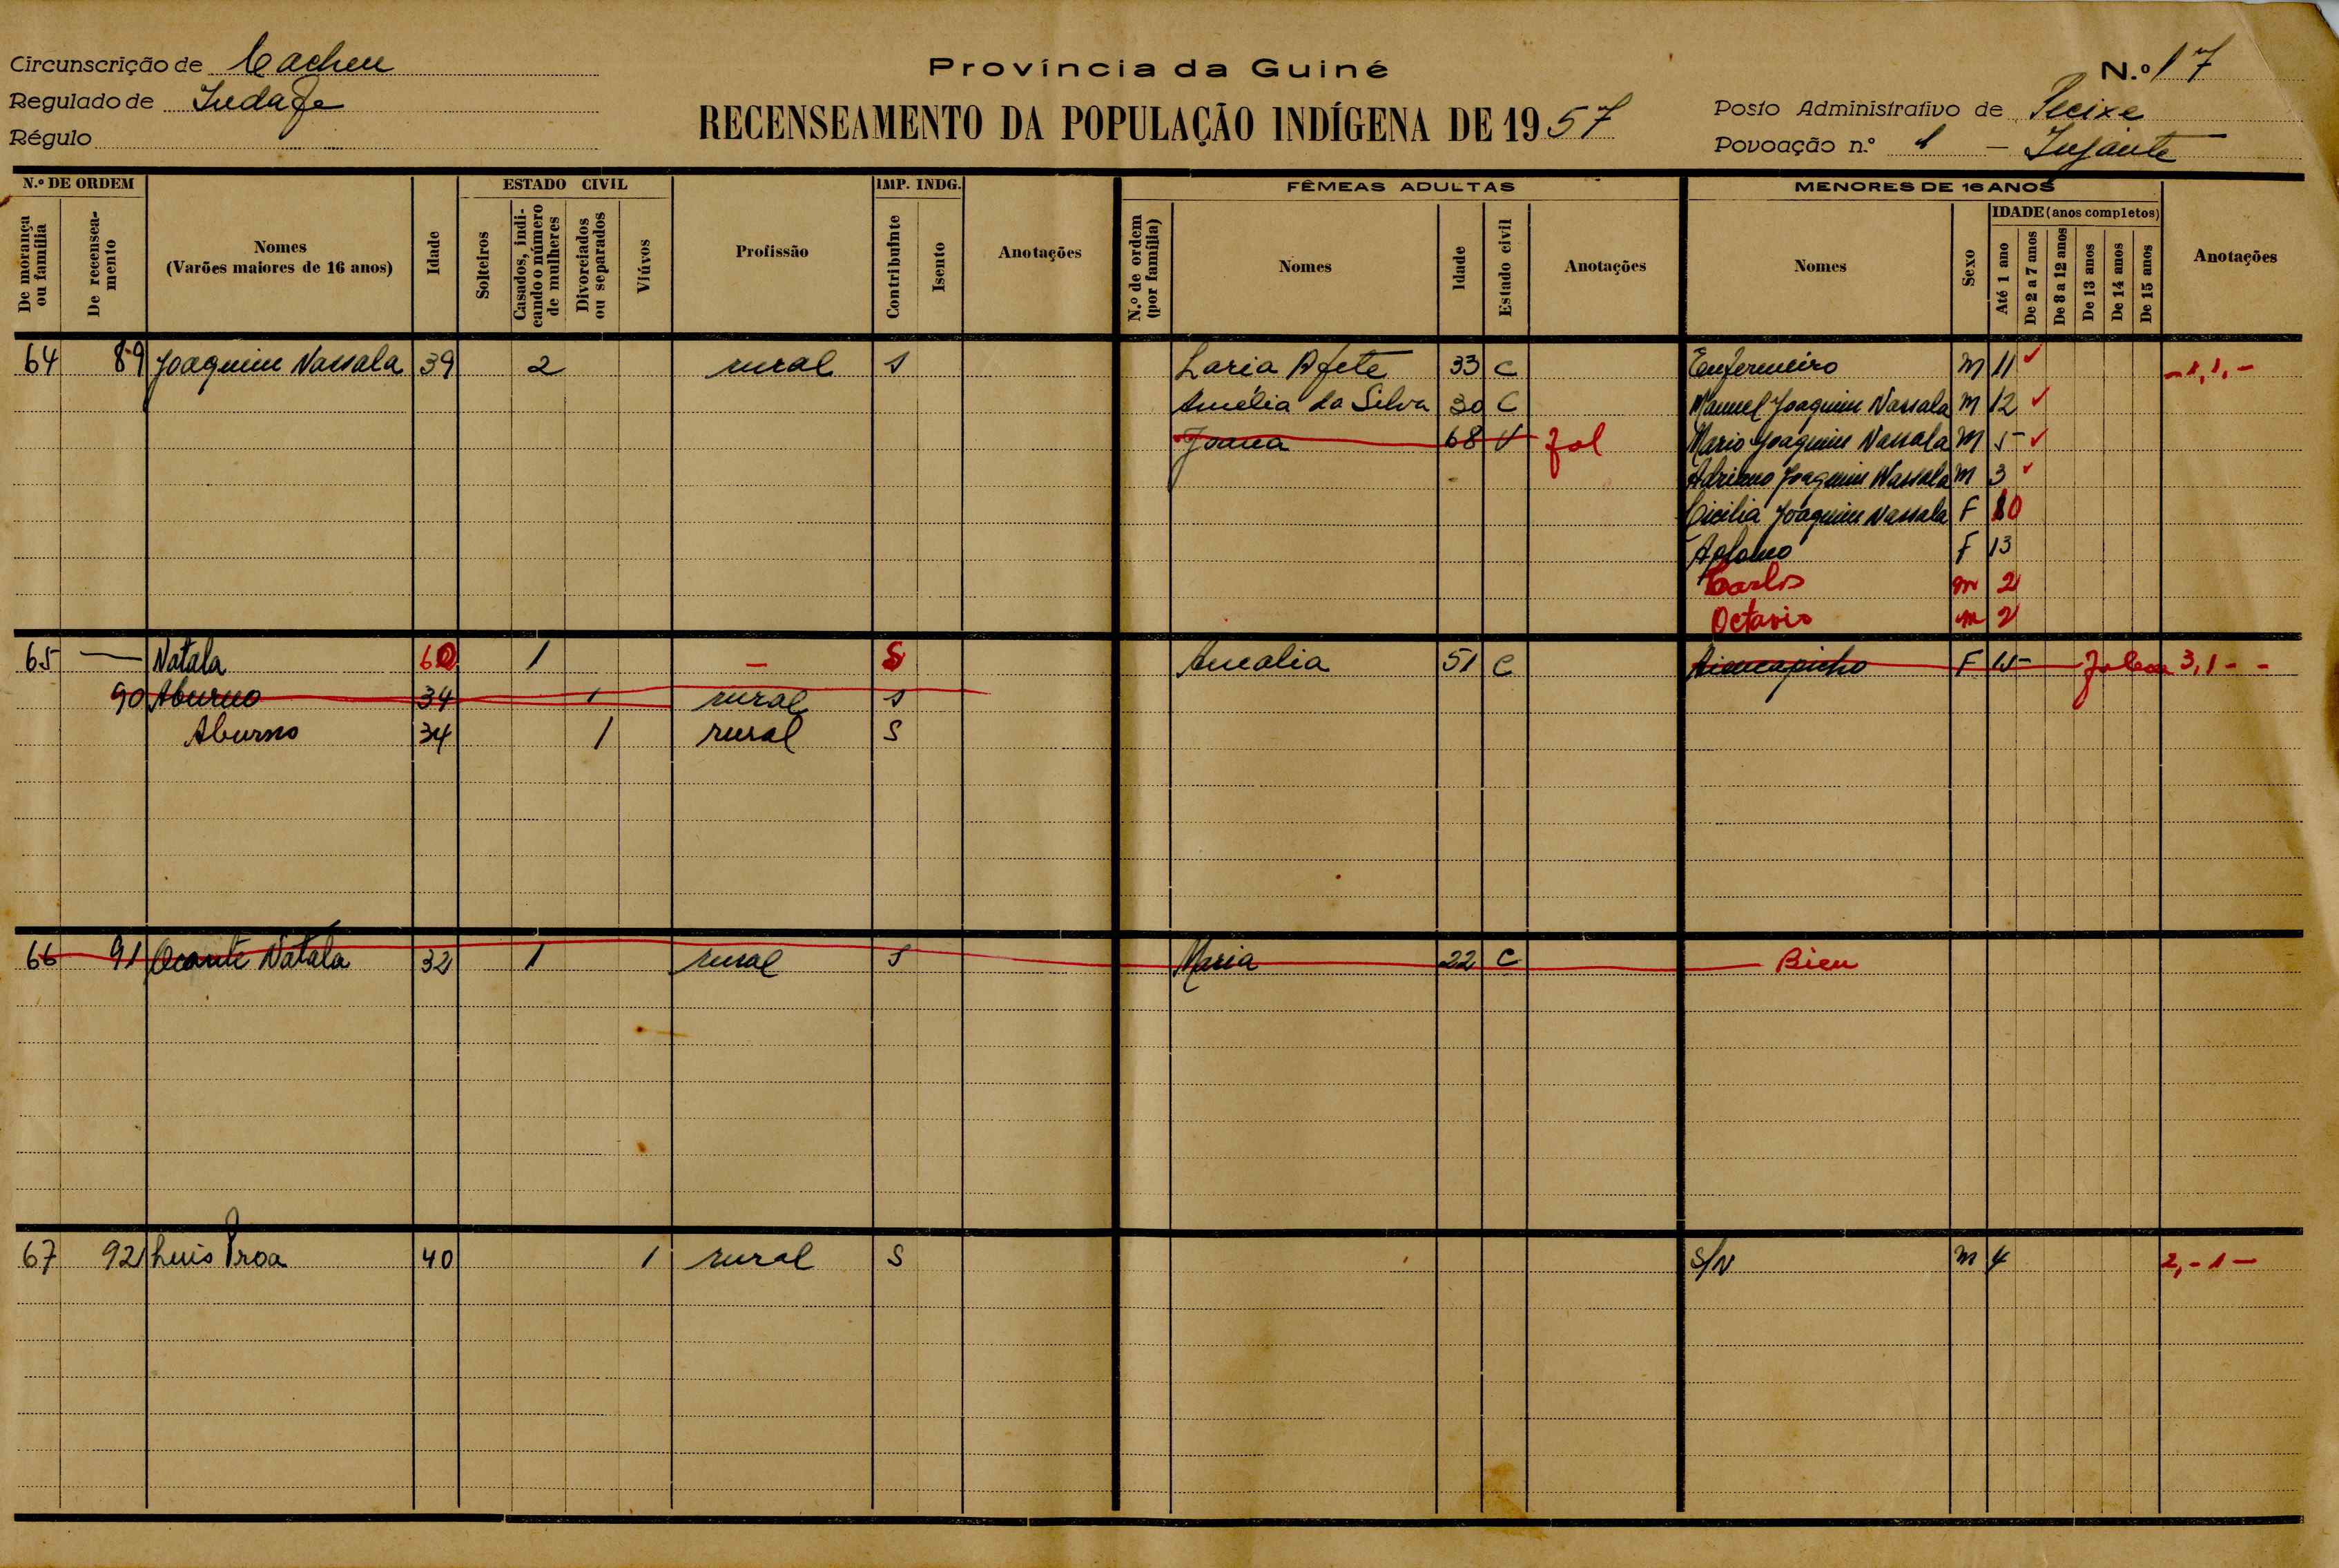 Província da Guiné
Circunscrição de Cacheu
N.º 17
Regulado de
RECENSEAMENTO DA POPULAÇÃO INDÍGENA DE 1957
Posto Administrativo de Pecixe
Régulo
Povoação n.º 1 –
N.º DE ORDEM
De morança ou família
De recenseamento
Nomes
(Varões maiores de 16 anos)
Idade
ESTADO CIVIL
Solteiros
Casados, indi-
cando o número
de mulheres
Divorciados
ou separados
Viúvos
Profissão
IMP. INDG.
Contribuinte
Isento
Anotações
FÊMEAS ADULTAS
N.º de ordem
(por família)
Nomes
Idade
Estado civil
Anotações
MENORES DE 16 ANOS
Nomes
Sexo
IDADE (anos completos)
Até 1 ano
De 2 a 7 anos
De 8 a 12 anos
De 13 anos
De 14 anos
De 15 anos
Anotações
64 89 Joaquim Nassala 39 2 rural s Laria Afete 33 C Enfermeiro M 11 ✓ – 1, 1, –
Amélia da Silva 30 C Manuel Joaquim Nassala M 12 ✓
Joana 68 V fal Mario Joaquim Nassala M 5 ✓
Adriano Joaquim Nassala M 3 ✓
Cicilia Joaquim Nassala F 10
F 13
Carlos m 2
Octavio m 2
65 — Natala 60 1 – S Amalia 51 C F 15 3, 1 - -
90 Aburno 34 1 rural s
Aburno 34 1 rural S
66 91 Ocante Natala 32 1 rural s Maria 22 C
67 92 Luis Proa 40 1 rural S S/N M 4 2, – 1 –